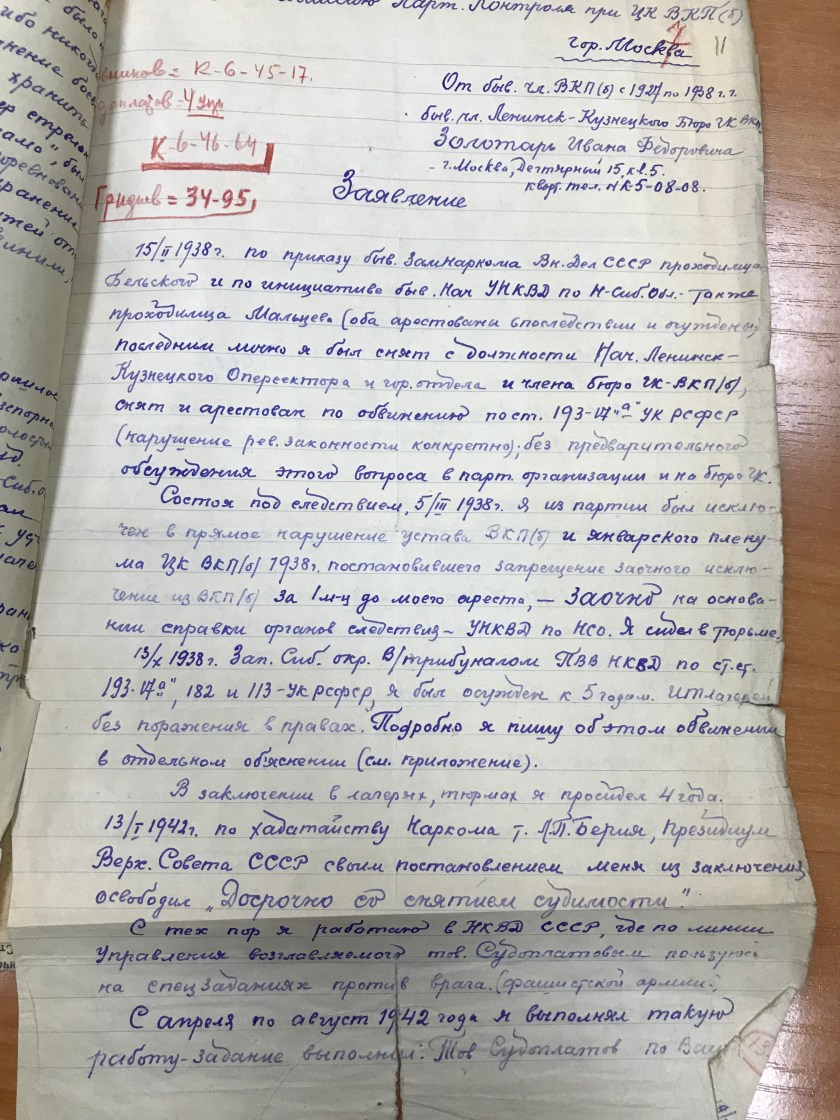 Парт. Контроля при ЦК ВКП(б)
гор. Москва
7
11
К-6-45-17.
К-6-46-64
= 34-95,
От быв. чл. ВКП(б) с 1927 по 1938 г.г.
быв. чл. Ленинск-Кузнецкого Бюро ГК ВКП
Золотарь Ивана Федоровича
- г. Москва, Дегтярный 15, кв. 5.
кварт. тел. № К-5-08-08.
Заявление
15/II 1938 г. по приказу быв. Замнаркома Вн. Дел СССР проходимца
Бельского и по инициативе быв. Нач УНКВД по Н-Сиб. Обл. - также
проходимца Мальцева (оба арестованы впоследствии и осуждены)
последним лично я был снят с должности Нач. Ленинск-
Кузнецкого Оперсектора и гор. отдела и члена бюро ГК-ВКП/б/,
снят и арестован по обвинению по ст. 193-17 "а" УК РСФСР
(нарушение рев. законности конкретно), без предварительного
обсуждения этого вопроса в парт. организации и на бюро ГК.
Состоя под следствием, 5/III 1938 г. я из партии был исклю-
чен в прямое нарушение устава ВКП/б/ и январского плену-
ма ЦК ВКП/б/ 1938 г. постановившего запрещение заочного исклю-
чение из ВКП/б/ за 1 м-ц до моего ареста, — Заочно на основа-
нии справки органов следствия - УНКВД по НСО. Я сидел в тюрьме.
13/X 1938 г. Зап. Сиб. окр. В/трибуналом ПВВ НКВД по ст. ст.
193-17 "а", 182 и 113-УК РСФСР, я был осужден к 5 годам. ИТлагерей
без поражения в правах. Подробно я пишу об этом обвинении
в отдельном об'яснении (см. приложение).
В заключении в лагерях, тюрмах я просидел 4 года.
13/I 1942 г. по хадатайству Наркома т. Л.П. Берия, Президиум
Верх. Совета СССР своим постановлением меня из заключения
освободил „Досрочно со снятием судимости".
С тех пор я работаю в НКВД СССР, где по линии
Управления возглавляемого тов. Судоплатовым
на спецзаданиях против врага. (фашистской армии).
С апреля по август 1942 года я выполнял такую
работу-задание выполнил. Тов Судоплатов по